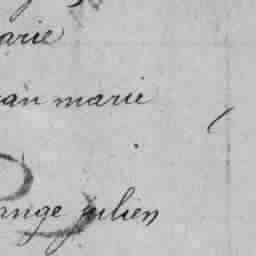 arie
an marie
ange julien